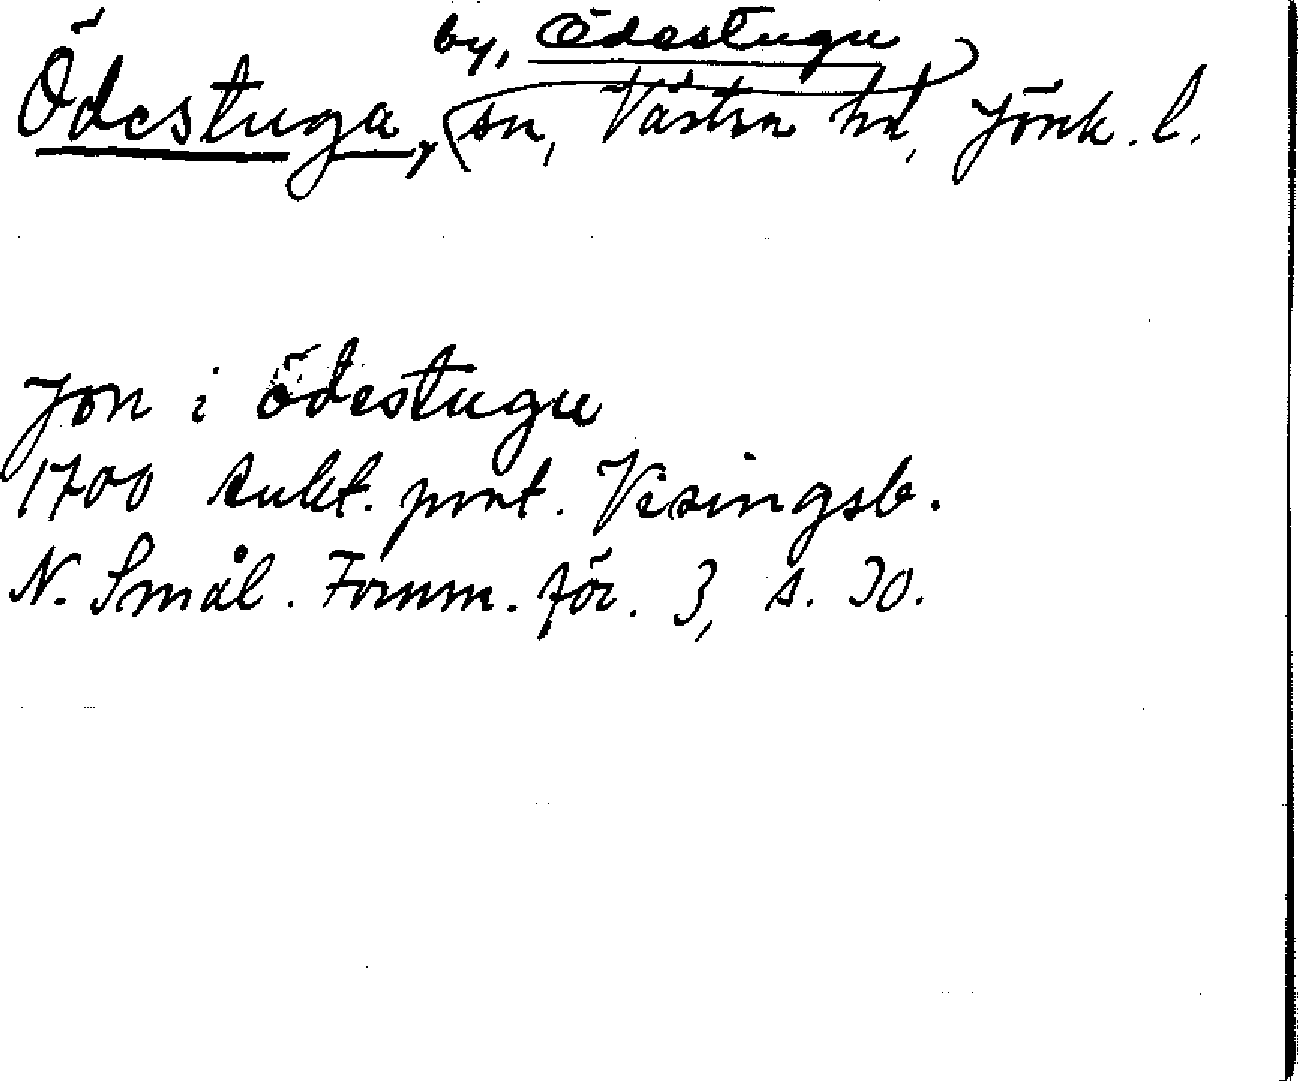 by, Ödestugu
Ödestuga, sn, Västra hd, Jönk. l.
Jon i Ödestugu
1700 aukt. prot. Visingsb.
N. Smål. Fornm. för. 3, s. 30.